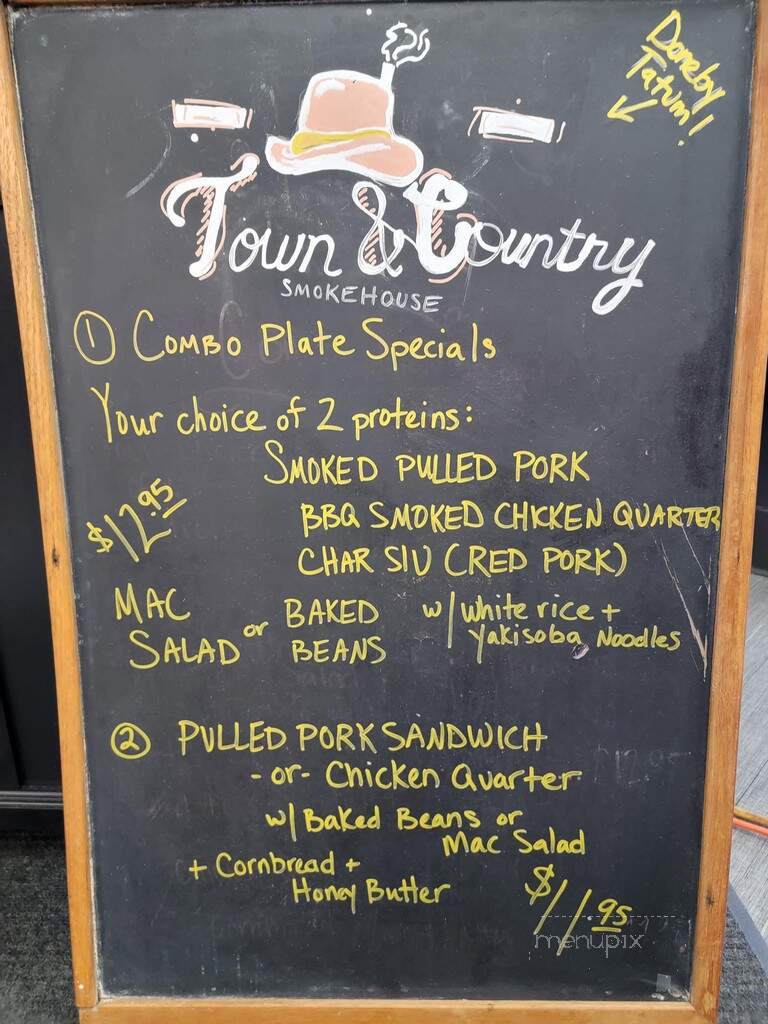 Done by
Tatum!
Town & Country
SMOKEHOUSE
① COMBO Plate Specials
Your choice of 2 proteins:
SMOKED PULLED PORK
$12.95
BBQ SMOKED CHICKEN QUARTER
CHAR SIU (RED PORK)
MAC SALAD or BAKED BEANS w/ white rice +
Yakisoba Noodles
② PULLED PORK SANDWICH
-or- Chicken Quarter
w/ Baked Beans or
Mac Salad
+ Cornbread +
Honey Butter
$11.95
menupix